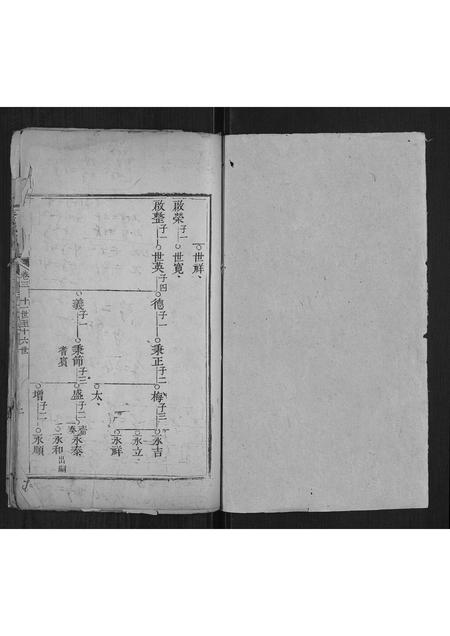 世祥、
啟榮子一 世寬、
啟整子一 世英子四 德子一 秉正子二 梅子三 永吉
永立、
永祥
太、
義子一 秉節子三 盛子二 永泰
耆賓
永和出嗣
增子二 永順
卷三 十一世至十六世